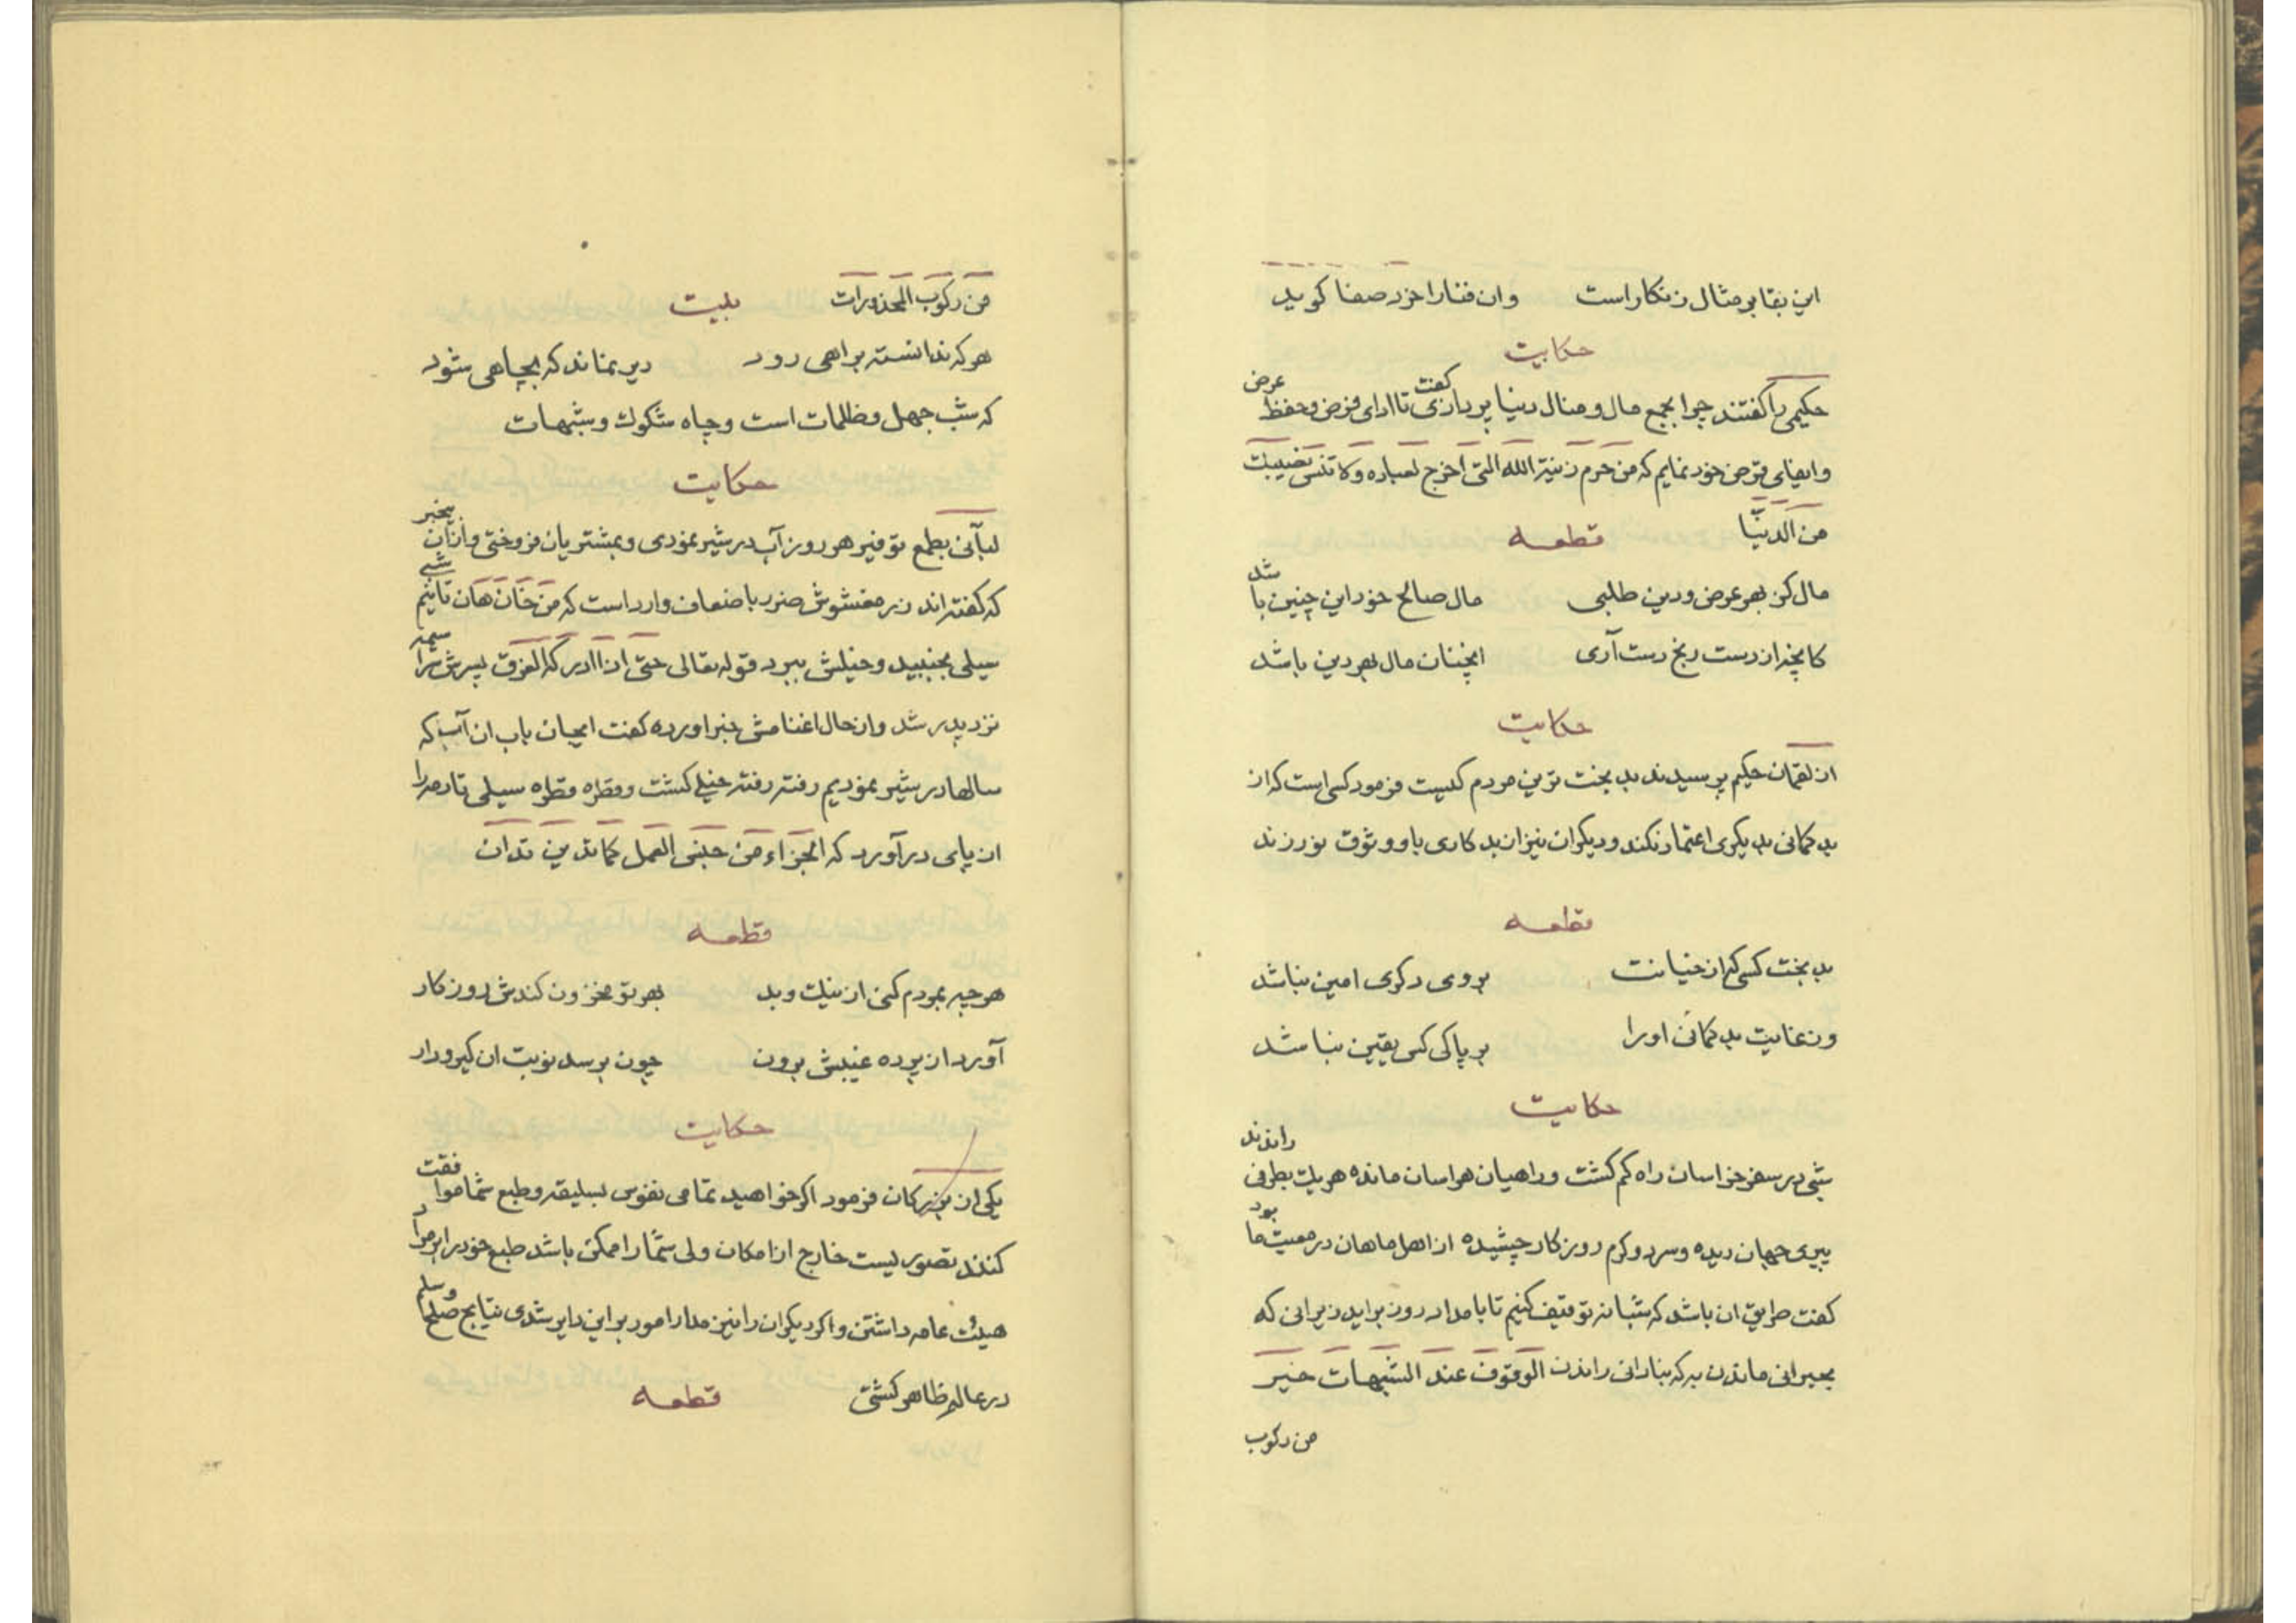 این بقا بر مثال زنگار است وان فنا را خرد صفا گوید
حکایت
حکیمی را گفتند چرا بجمع مال و منال دنیا پردازی گفت تا ادای فرض و حفظ عرض
وایفای قرض خود نمایم که من حرم زینة الله التی اخرج لعباده ولا تنس نصیبک
من الدنیا قطعه
مال کز بهر عرض و دین طلبی مال صالح خود این چنین باشد
کانچه از دست رنج دست آری انچنان مال بهر دین باشد
حکایت
از لقمان حکیم پرسیدند بد بخت ترین مردم کیست فرمود کسی است که از
بد گمانی بدیگری اعتماد نکند و دیگران نیز از بد کاری باو وثوق نورزند
قطعه
بد بخت کسی که از خیانت بروی دگری امین نباشد
وز غایت بد گمانی اورا بر پاکی کس یقین نباشد
حکایت
شبی در سفر خراسان راه گم گشت و راهیان هراسان مانده هریک بطرفی راندند
پیری جهان دیده و سرد و گرم روزگار چشیده از اهل ماهان در معیت ما بود
گفت طریق ان باشد که شبانه توقیف کنیم تا بامداد روز براید زیرانی که
بحیرانی ماندن به که بنادانی راندن الوقوف عند الشبهات خیر
من رکوب
من رکوب المحذورات بیت
هر که ندانسته براهی رود دیر نماند که بچاهی شود
که شب جهل و ظلمات است و چاه شکوک و شبهات
حکایت
لبآنی بطمع توفیر هر روز آب در شیر نمودی و بمشتریان فروختی وازان بیخبر
که گفته اند زر مغشوش ضرر باضعاف وارد است که من خان هان تا نیم شبی
سیلی بجنبید و خیلش ببرد قوله تعالی حتی اذا ادرکه الغرق پسرش سراسیمه
نزد پدر شد واز حال اغنامش خبر اورده گفت ایجان باب ان آب که
سالها در شیر نمودیم رفته رفته خیلی گشت و قطره قطره سیلی تا رمه را
از پای در آورد که الجزاء من جنس العمل کما تدین تدان
قطعه
هر چه بمردم کنی از نیک و بد بهر تو مخزون کندش روزگار
آورد از پرده غیبش برون چون برسد نوبت ان گیرودار
حکایت
یکی از بزرگان فرمود اگر خواهید تمامی نفوس بسلیقه و طبع شما موافقت
کنند تصوریست خارج از امکان ولی شما را ممکن باشد طبع خود را بر مراد
هیئت عامه داشتن واگر دیگران را نیز مدار امور بر این دایر شدی نتایج صلح و سلم
در عالم ظاهر گشتی قطعه